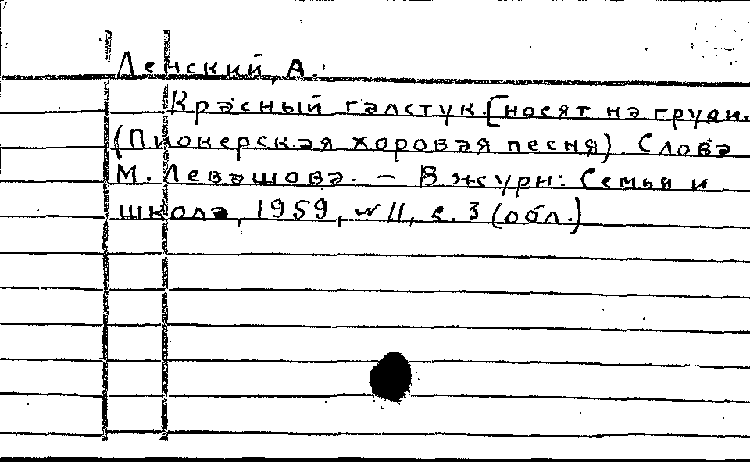 Ленский, А.
Красный галстук [носят на груди.
(Пионерская хоровая песня). Слова
М. Левашова. – В журн: Семья и
школа, 1959, № 11, с. 3 (обл.)